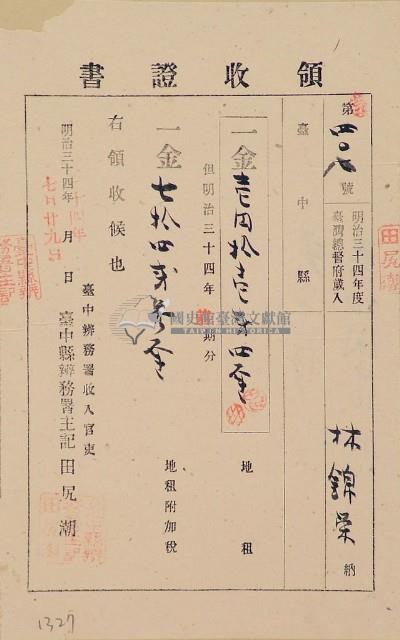 領收證書
第四〇七號
明治三十四年度
臺灣總督府歲入
臺中縣
林錦榮 納
一金壱円拾壱戋四厘 地租
但明治三十四年 前期分
一金七拾四戋 厘 地租附加稅
右領收候也
明治三十四年 月 日
七月廿九日
臺中辨務署收入官吏
臺中縣辨務署主記 田尻潮
國史館臺灣文獻館
TAIWAN HISTORICA
田尻
1327